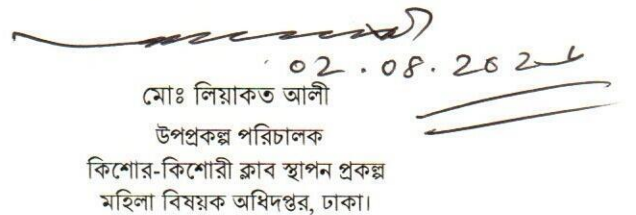 02.08.202
মোঃ লিয়াকত আলী
উপপ্রকল্প পরিচালক
কিশোর-কিশোরী ক্লাব স্থাপন প্রকল্প
মহিলা বিষয়ক অধিদপ্তর, ঢাকা।